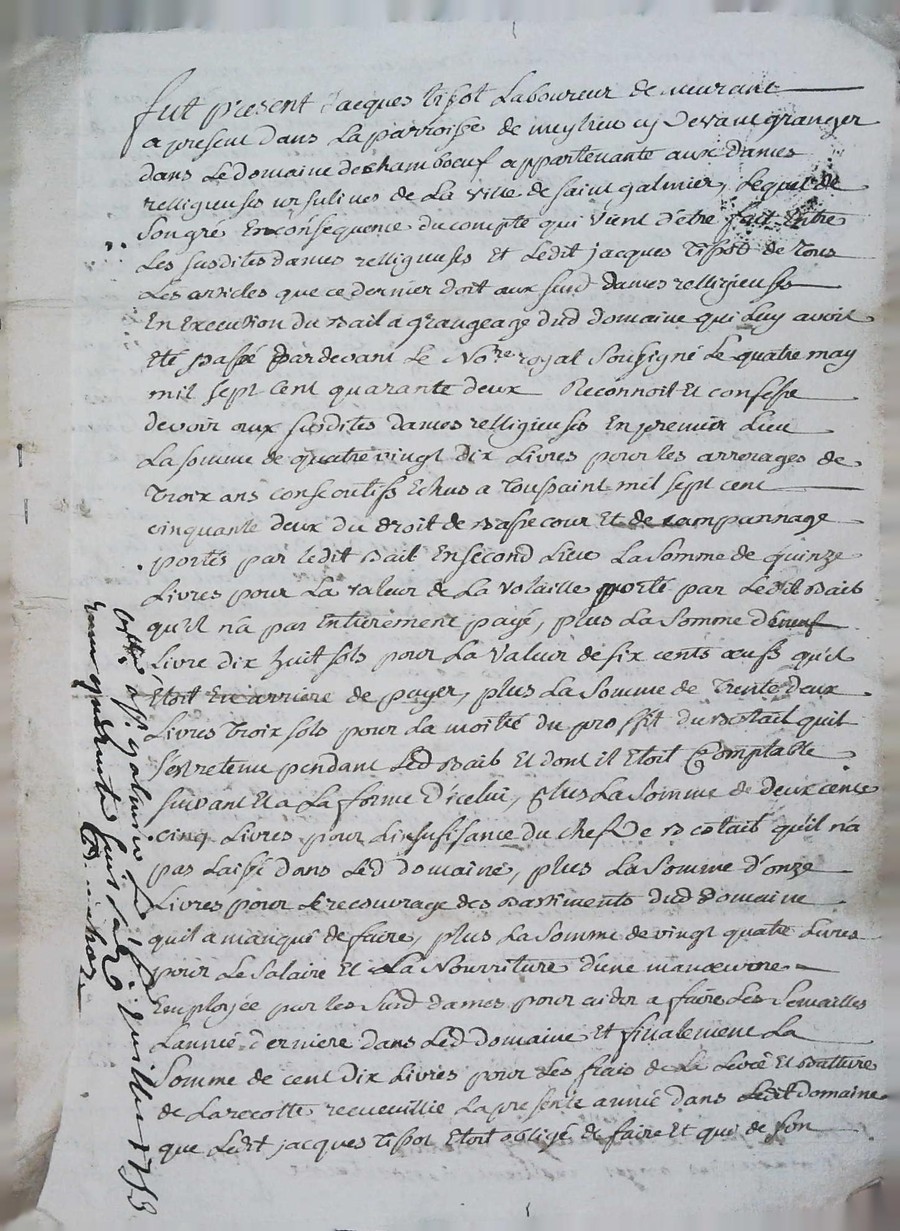 fut present Jacques tissot Laboureur de
a present dans La parroisse de meylieu cy devant granger
dans Le domaine de chamboeuf appartenante aux dames
relligieuses ursulines de La ville de saint galmier, Lequel de
son gré En conséquence du compte qui vient d'etre fait Entre
Les susdites dames relligieuses et Ledit jacques Tissot de tous
Les articles que ce dernier doit aux susd dames relligieuses
En Execution du Bail a grangeage dud domaine qui Luy avoit
Eté passé pardevant Le No.re royal soussigné Le quatre may
mil sept cent quarante deux Reconnoit et confesse
devoir aux susdites dames relligieuses En premier Lieu
La somme de quatre vingt dix Livres pour les arrerages de
Troix ans consecutifs Echus a Toussaint mil sept cent
cinquante deux du droit de Basse cour Et de
portés par ledit Bail En second Lieu La somme de quinze
Livres pour La valeur de La volaille porté par Ledit Bail
qu'il n'a pas Entierement payé, plus La somme de neuf
Livre dix huit sols pour La valeur de six cents oeufs qu'il
Etoit En arriere de payer, plus La somme de Trente deux
Livres Trois sols pour La moitié du proffit du Betail quil
s'est retenu pendant Led Bail Et dont il Etoit Comptable
suivant Et a La forme d'icelui, plus La somme de deux cents
cinq Livres pour Linsufisance du chef de Betail qu'il n'a
pas Laissé dans Led domaine, plus La somme d'onze
Livres pour Le recouvrage des Bastiments dud Domaine
quil a manqué de faire, plus La somme de vingt quatre Livres
pour Le salaire Et La Nourriture d'une manoeuvre
Employée par les susd dames pour aider a faire Les semailles
Lannée derniere dans Led domaine Et finalement La
somme de cent dix Livres pour Les frais de La Levée Et Batture
de La recolte recueuillie La presente année dans Ledit domaine
que Ledit jacques Tissot Etoit obligé de faire Et qui de son
juillet 1753
quarante huit